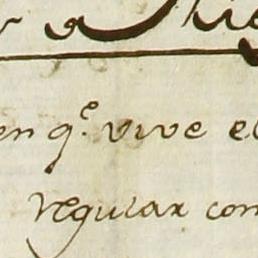 en q.e vive el
regular con